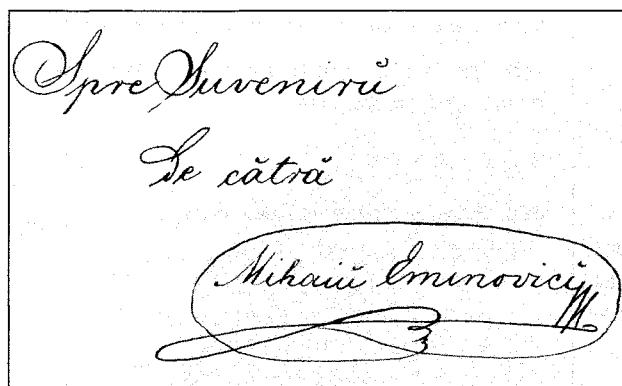 Spre Suvenirŭ
De cătră
Mihaiŭ Eminovicĭ